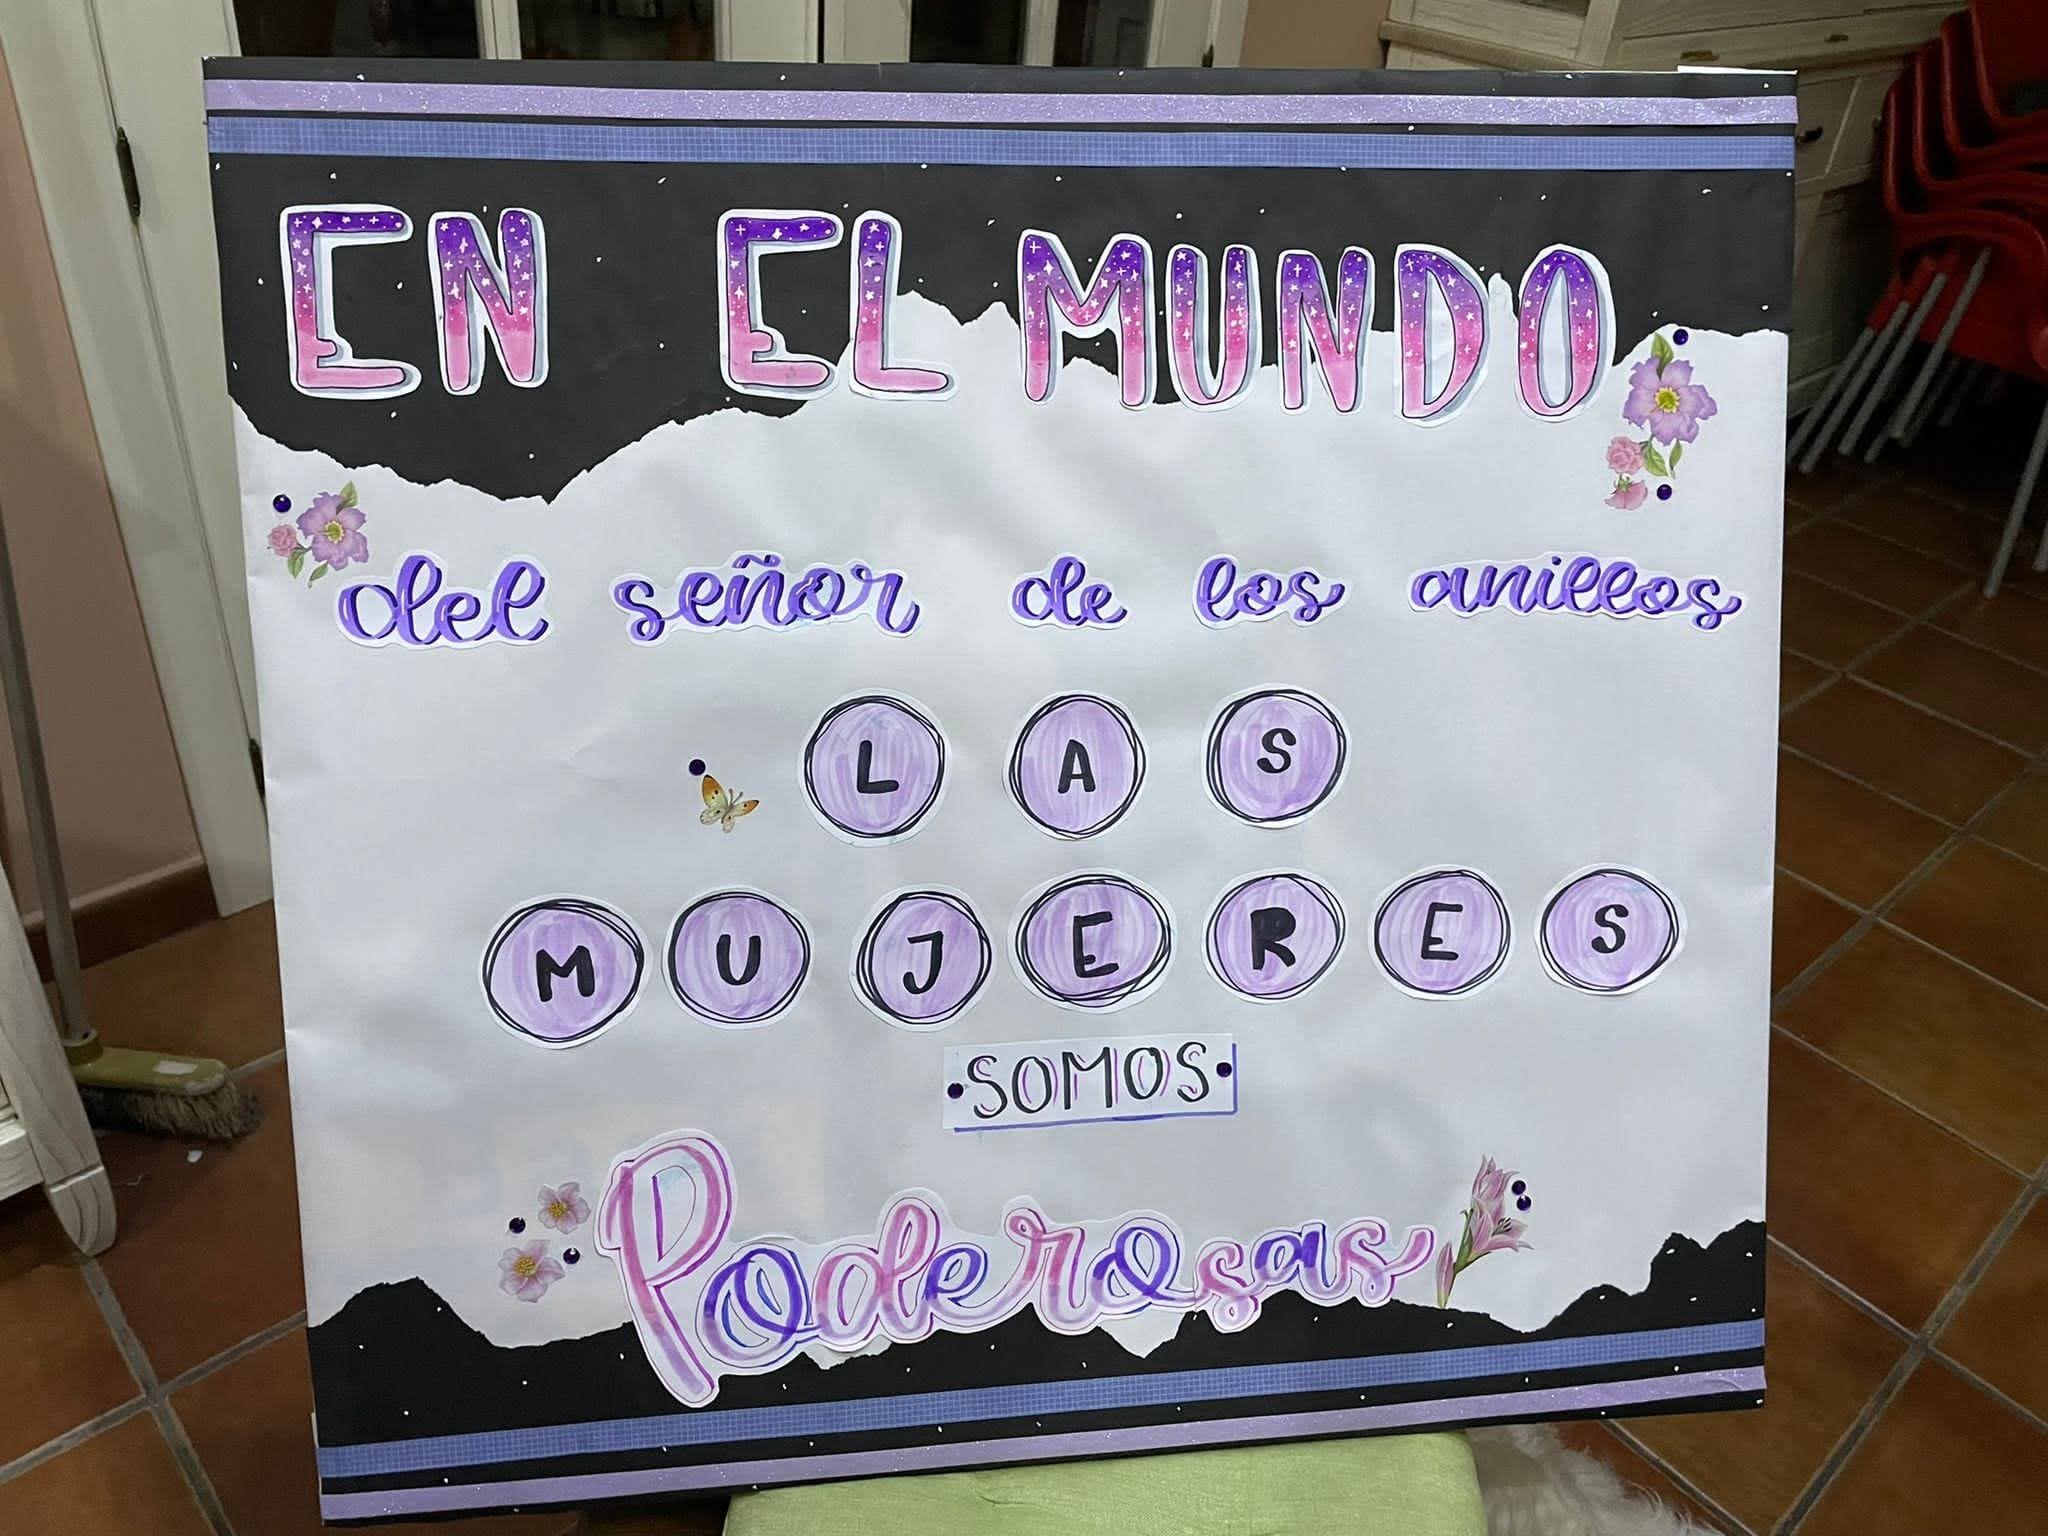 EN EL MUNDO
del señor de los anillos
LAS
MUJERES
SOMOS
Poderosas